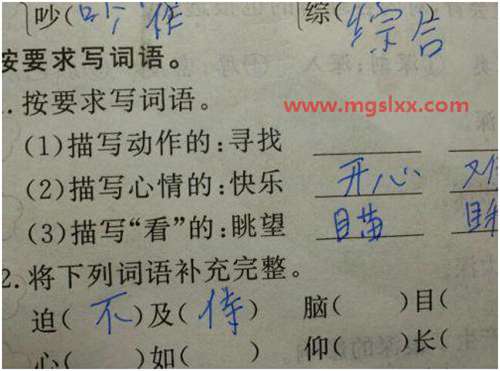 吵( 综( 综合
按要求写词语。
.按要求写词语。
www.mgslxx.com
(1)描写动作的:寻找
(2)描写心情的:快乐 开心
(3)描写“看”的:眺望 瞄
2.将下列词语补充完整。
迫( 不 )及( 待 ) 脑( )目(
心( )如( ) 仰( )长(